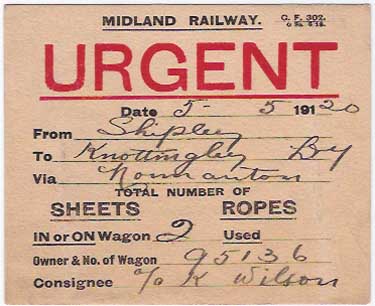 MIDLAND RAILWAY. G. F. 302.
URGENT
Date 5 - 5 1920
From Shipley
To Knottingley Ly
Via Normanton
TOTAL NUMBER OF
SHEETS ROPES
IN or ON Wagon 2 Used
Owner & No. of Wagon 95136
Consignee o/o K Wilson